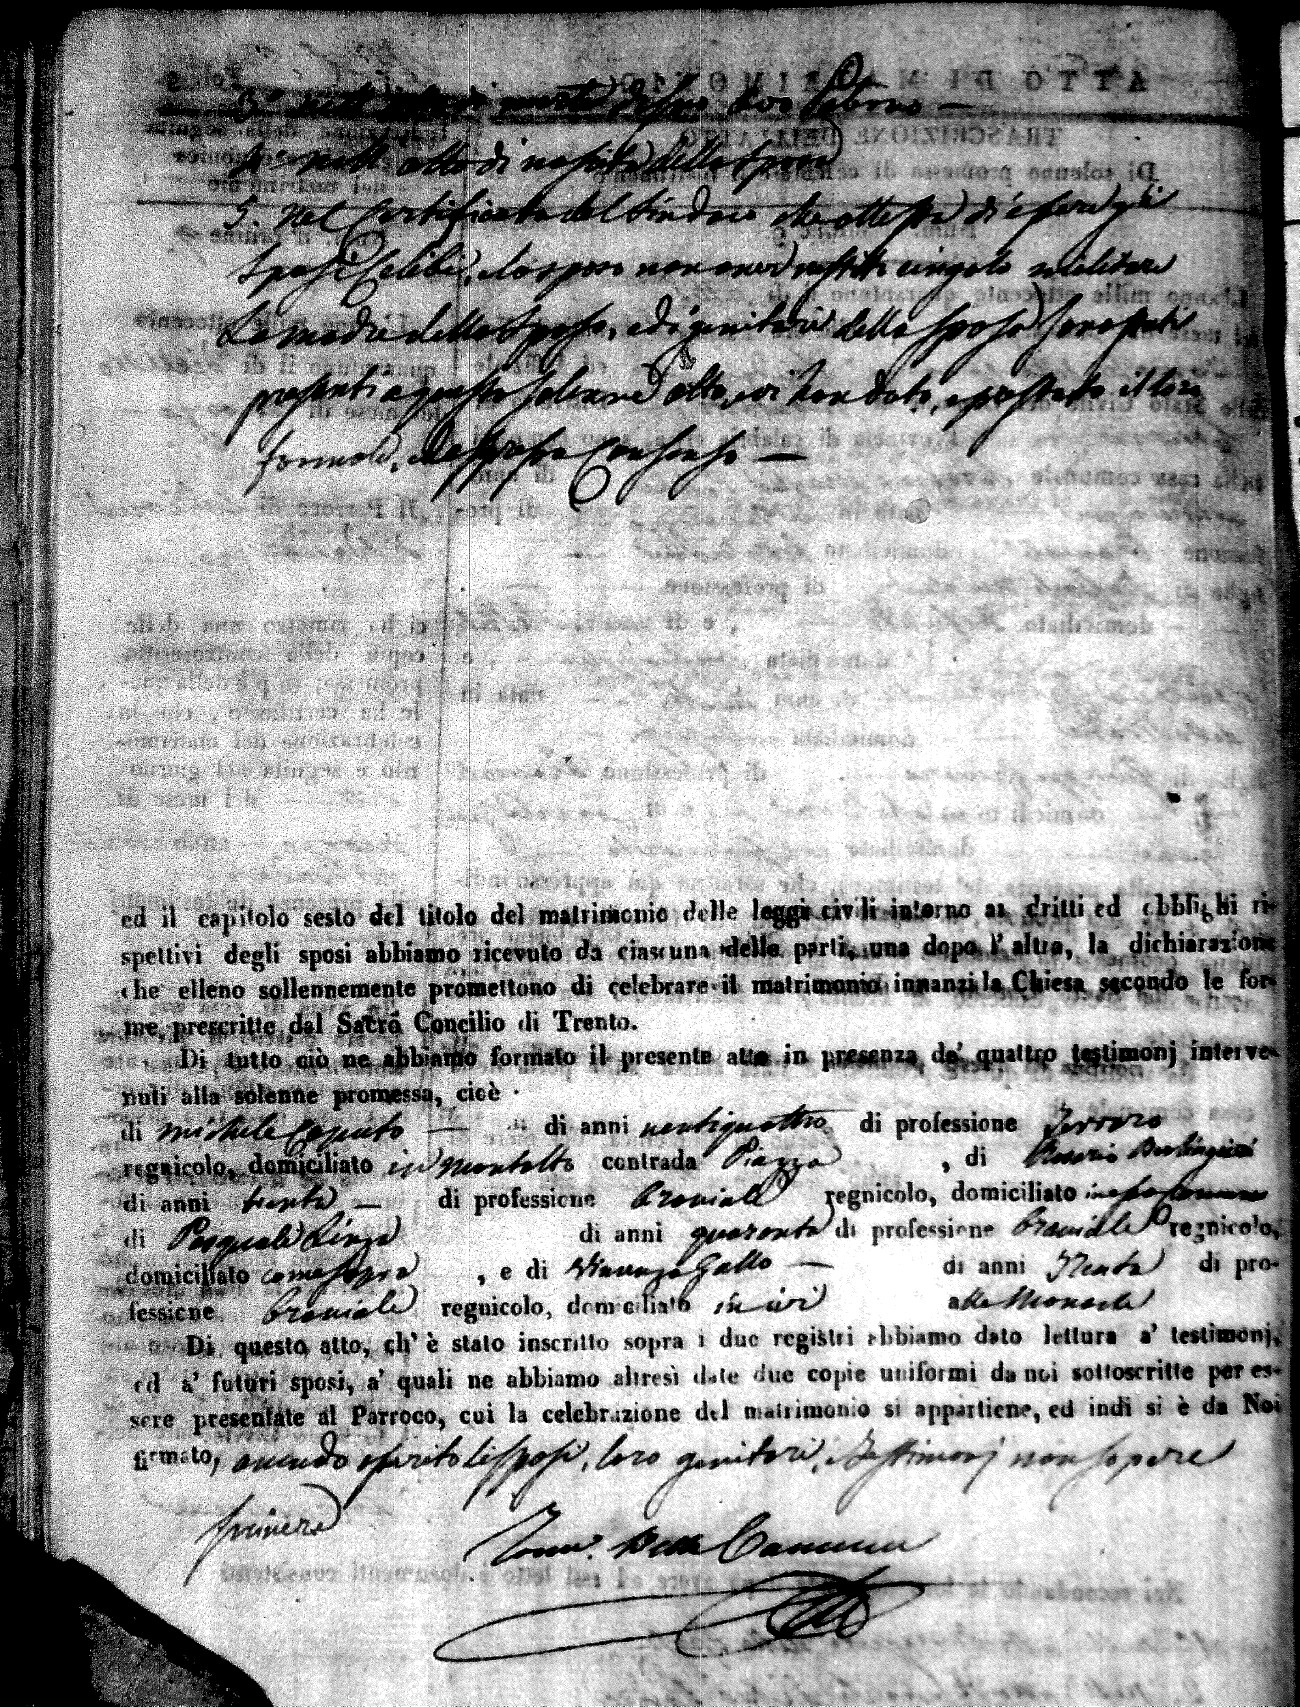 3° nell' atto di morte del suo Avo Paterno —
4° nell' atto di nascita della sposa
5. Nel Certificato del Sindaco che attesta di essere gli
sposi celibi, e lo sposo non aver militare
La madre dello sposo, ed i genitori della sposa sono stati
presenti a questo solenne atto, ed han dato, e prestato il loro
formale, ed espresso Consenso —
ed il capitolo sesto del titolo del matrimonio delle leggi civili intorno ai dritti ed obblighi ri-
spettivi degli sposi abbiamo ricevuto da ciascuna delle parti, una dopo l' altra, la dichiarazione
che elleno sollennemente promettono di celebrare il matrimonio innanzi la Chiesa secondo le for-
me prescritte dal Sacro Concilio di Trento.
Di tutto ciò ne abbiamo formato il presente atto in presenza de' quattro testimonj interve-
nuti alla solenne promessa, cioè
di Michele Caputo — di anni ventiquattro di professione Ferraro
regnicolo, domiciliato in Montalto contrada Piazza , di Rosario
di anni trenta — di professione Bracciale regnicolo, domiciliato
di Pasquale di anni quaranta di professione Bracciale regnicolo,
domiciliato come sopra , e di Vincenzo Gallo — di anni Trenta di pro-
fessione Bracciale regnicolo, domiciliato in ivi
Di questo atto, ch' è stato inscritto sopra i due registri abbiamo dato lettura a' testimonj,
ed a' futuri sposi, a' quali ne abbiamo altresì date due copie uniformi da noi sottoscritte per es-
sere presentate al Parroco, cui la celebrazione del matrimonio si appartiene, ed indi si è da Noi
firmato, avendo asserito li sposi, loro genitori, e testimonj non sapere
scrivere